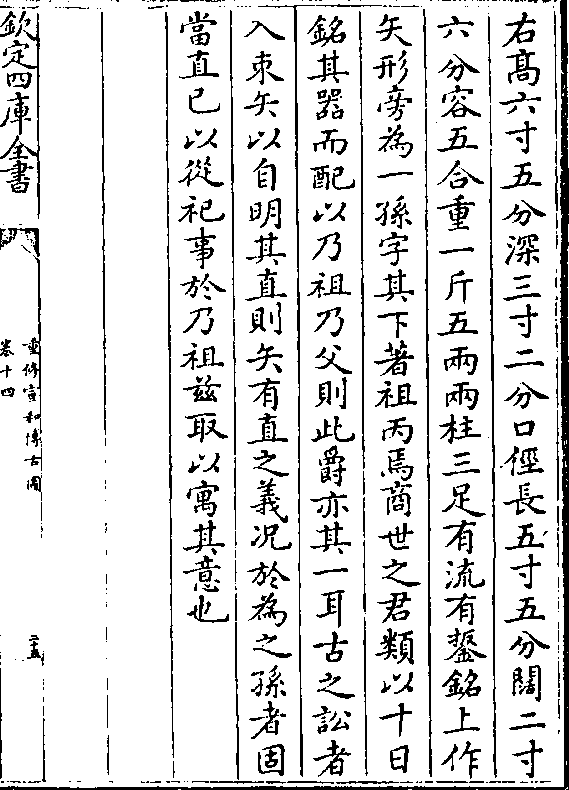 右髙六寸五分深三寸二分口徑長五寸五分闊二寸
六分容五合重一斤五兩兩柱三足有流有鋬銘上作
矢形旁為一孫字其下著祖丙焉商世之君類以十日
銘其器而配以乃祖乃父則此爵亦其一耳古之訟者
入束矢以自明其直則矢有直之義况於為之孫者固
當直已以從祀事於乃祖兹取以寓其意也
欽定四庫全書
重修宣和博古圖
卷十四
二十五